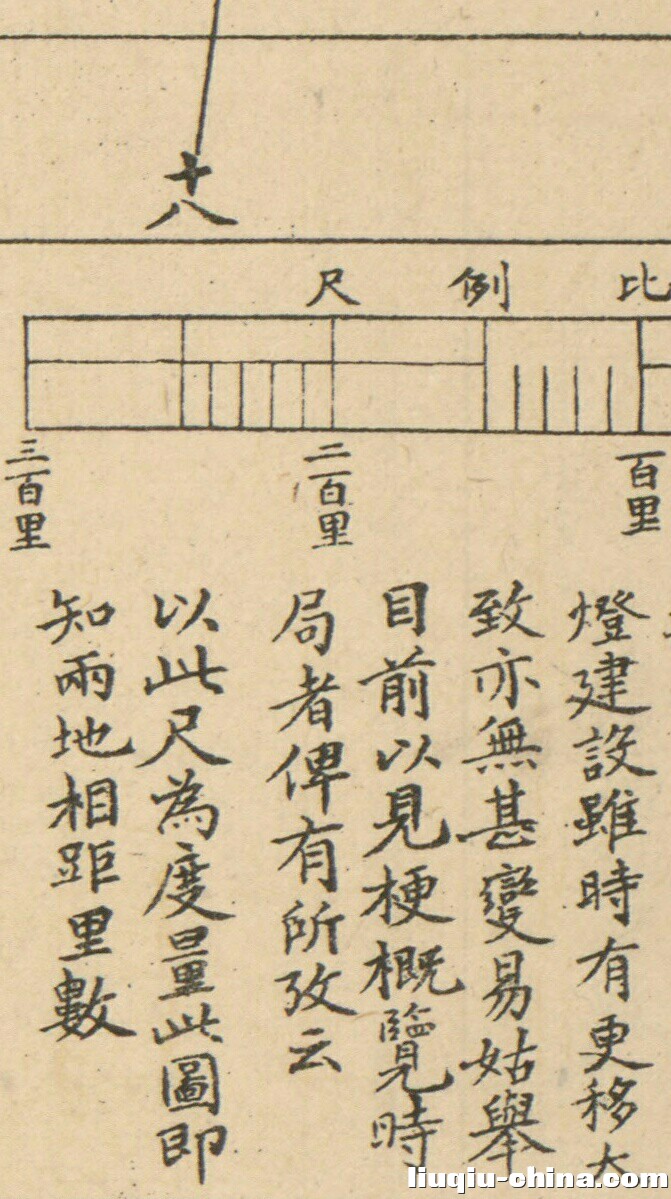 十八
比例尺
百里
二百里
三百里
燈建設雖時有更移大
致亦無甚變易姑舉
目前以見梗概覽時
局者俾有所攷云
以此尺為度量此圖即
知兩地相距里數
liuqiu-china.com